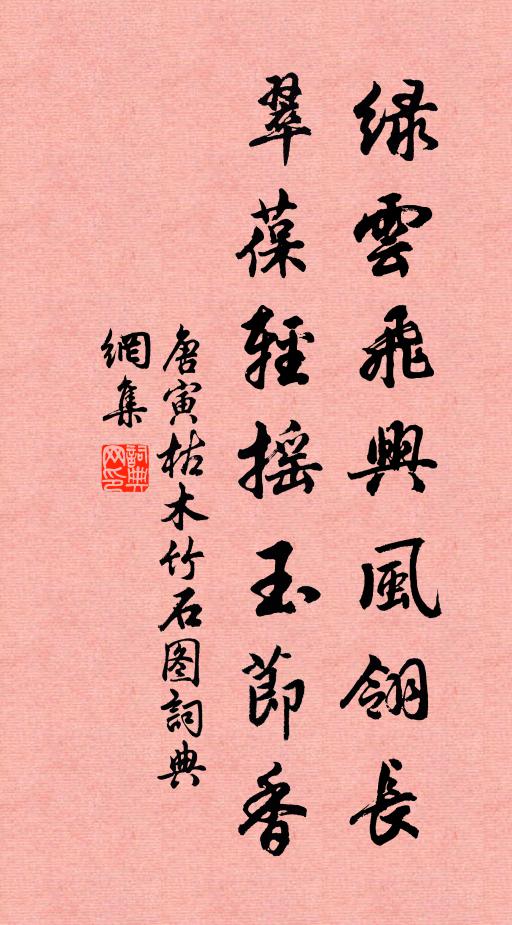 緑雲飛興風翎長
翠葆輕摇玉節香
唐寅枯木竹石图詞典
網集
詞典
网印